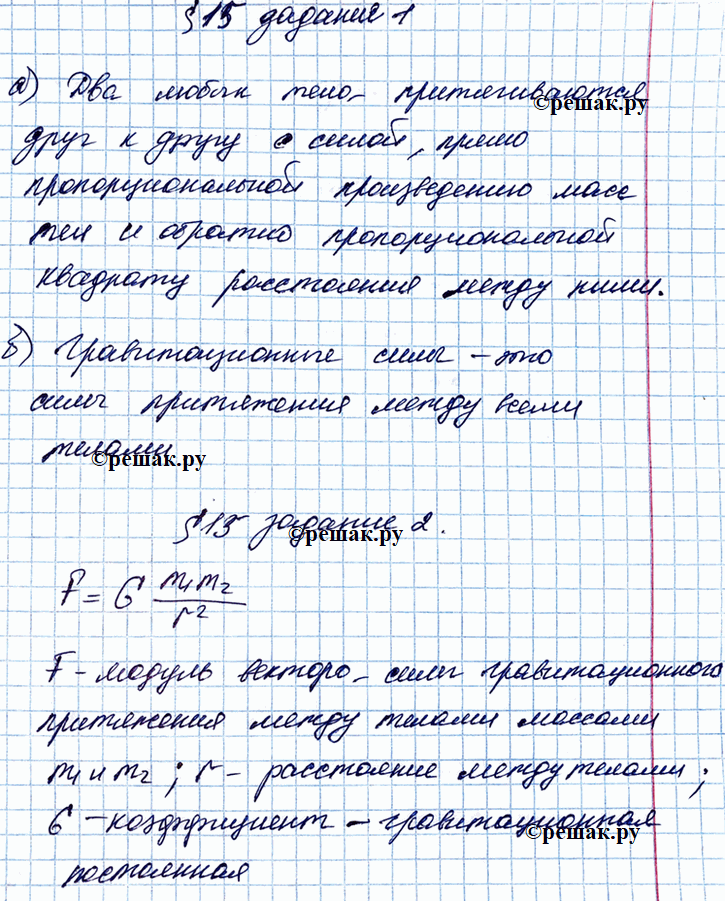 §15 задание 1
а) Два любых тела притягиваются
©решак.ру
друг к другу с силой, прямо
пропорциональной произведению масс
тел и обратно пропорциональной
квадрату расстояния между ними.
б) Гравитационные силы – это
силы притяжения между всеми
телами
©решак.ру
§15 задание 2.
©решак.ру
F = G m₁m₂/r²
F – модуль вектора силы гравитационного
притяжения между телами массами
m₁ и m₂ ; r – расстояние между телами ;
G – коэффициент – гравитационная
©решак.ру
постоянная